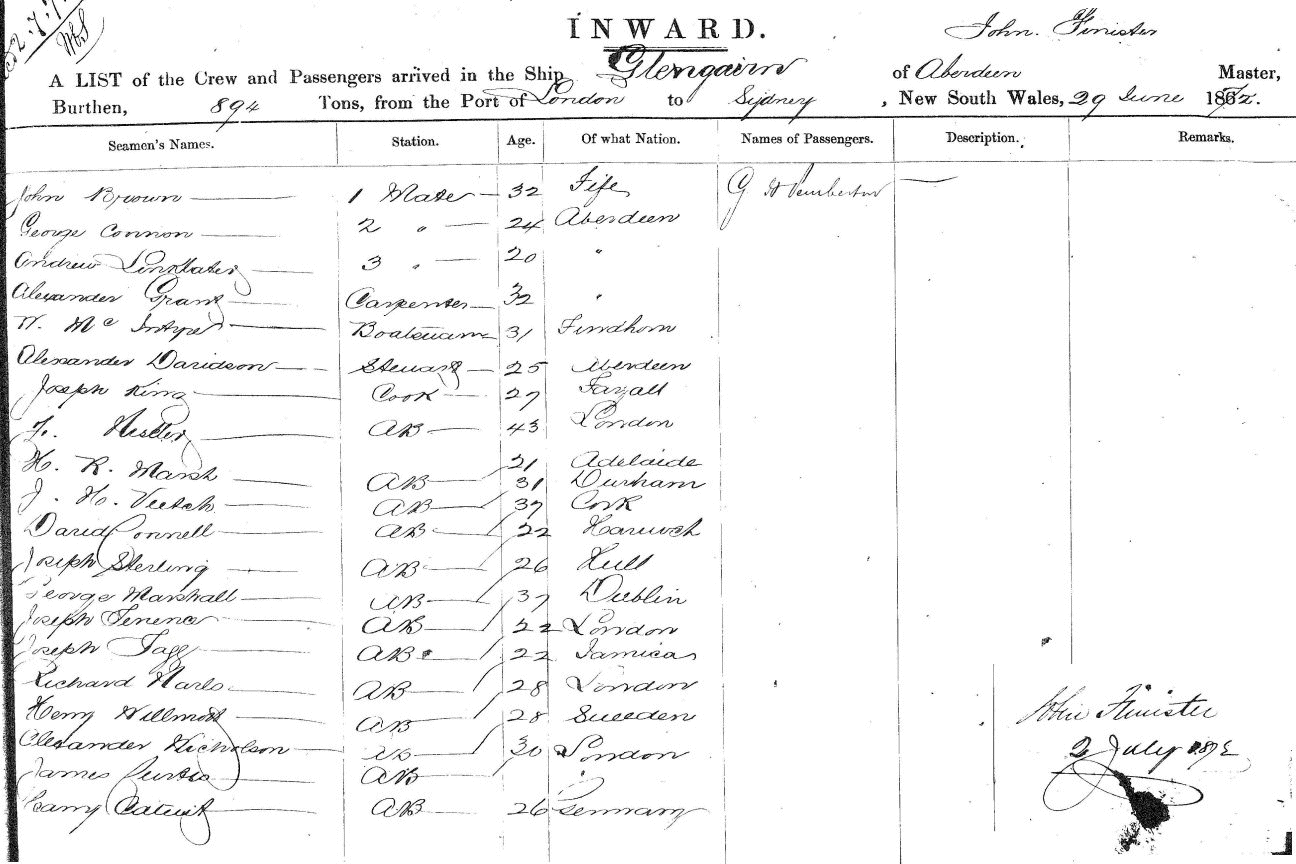 INWARD.
John. Finister
A LIST of the Crew and Passengers arrived in the Ship Glengairn of Aberdeen Master,
Burthen, 894 Tons, from the Port of London to Sydney, New South Wales, 29 June 1872.
Seamen's Names. Station. Age. Of what Nation. Names of Passengers. Description. Remarks.
John Brown 1 Mate 32 Fife G H Pemberton —
George Connon 2 " 24 Aberdeen
Andrew Linklater 3 " 20 "
Alexander Grant Carpenter 32 "
W. Mc Intyre Boatswain 31 Findhorn
Alexander Davidson Steward 25 Aberdeen
Joseph King Cook 27
F. AB 43 London
H. R. Marsh AB 21 Adelaide
J. H. Veitch AB 31 Durham
David Connell AB 37 Cork
Joseph Sterling AB 22 Harwich
George Marshall AB 26 Hull
Joseph AB 37 Dublin
Joseph Tagg AB 22 London
Richard AB 22 Jamica
Henry Willmott AB 28 London
Alexander Nicholson AB 28 Sweeden
James Curtis AB 30 London
Harry AB 26 Germany
John Finister
2 July 1872